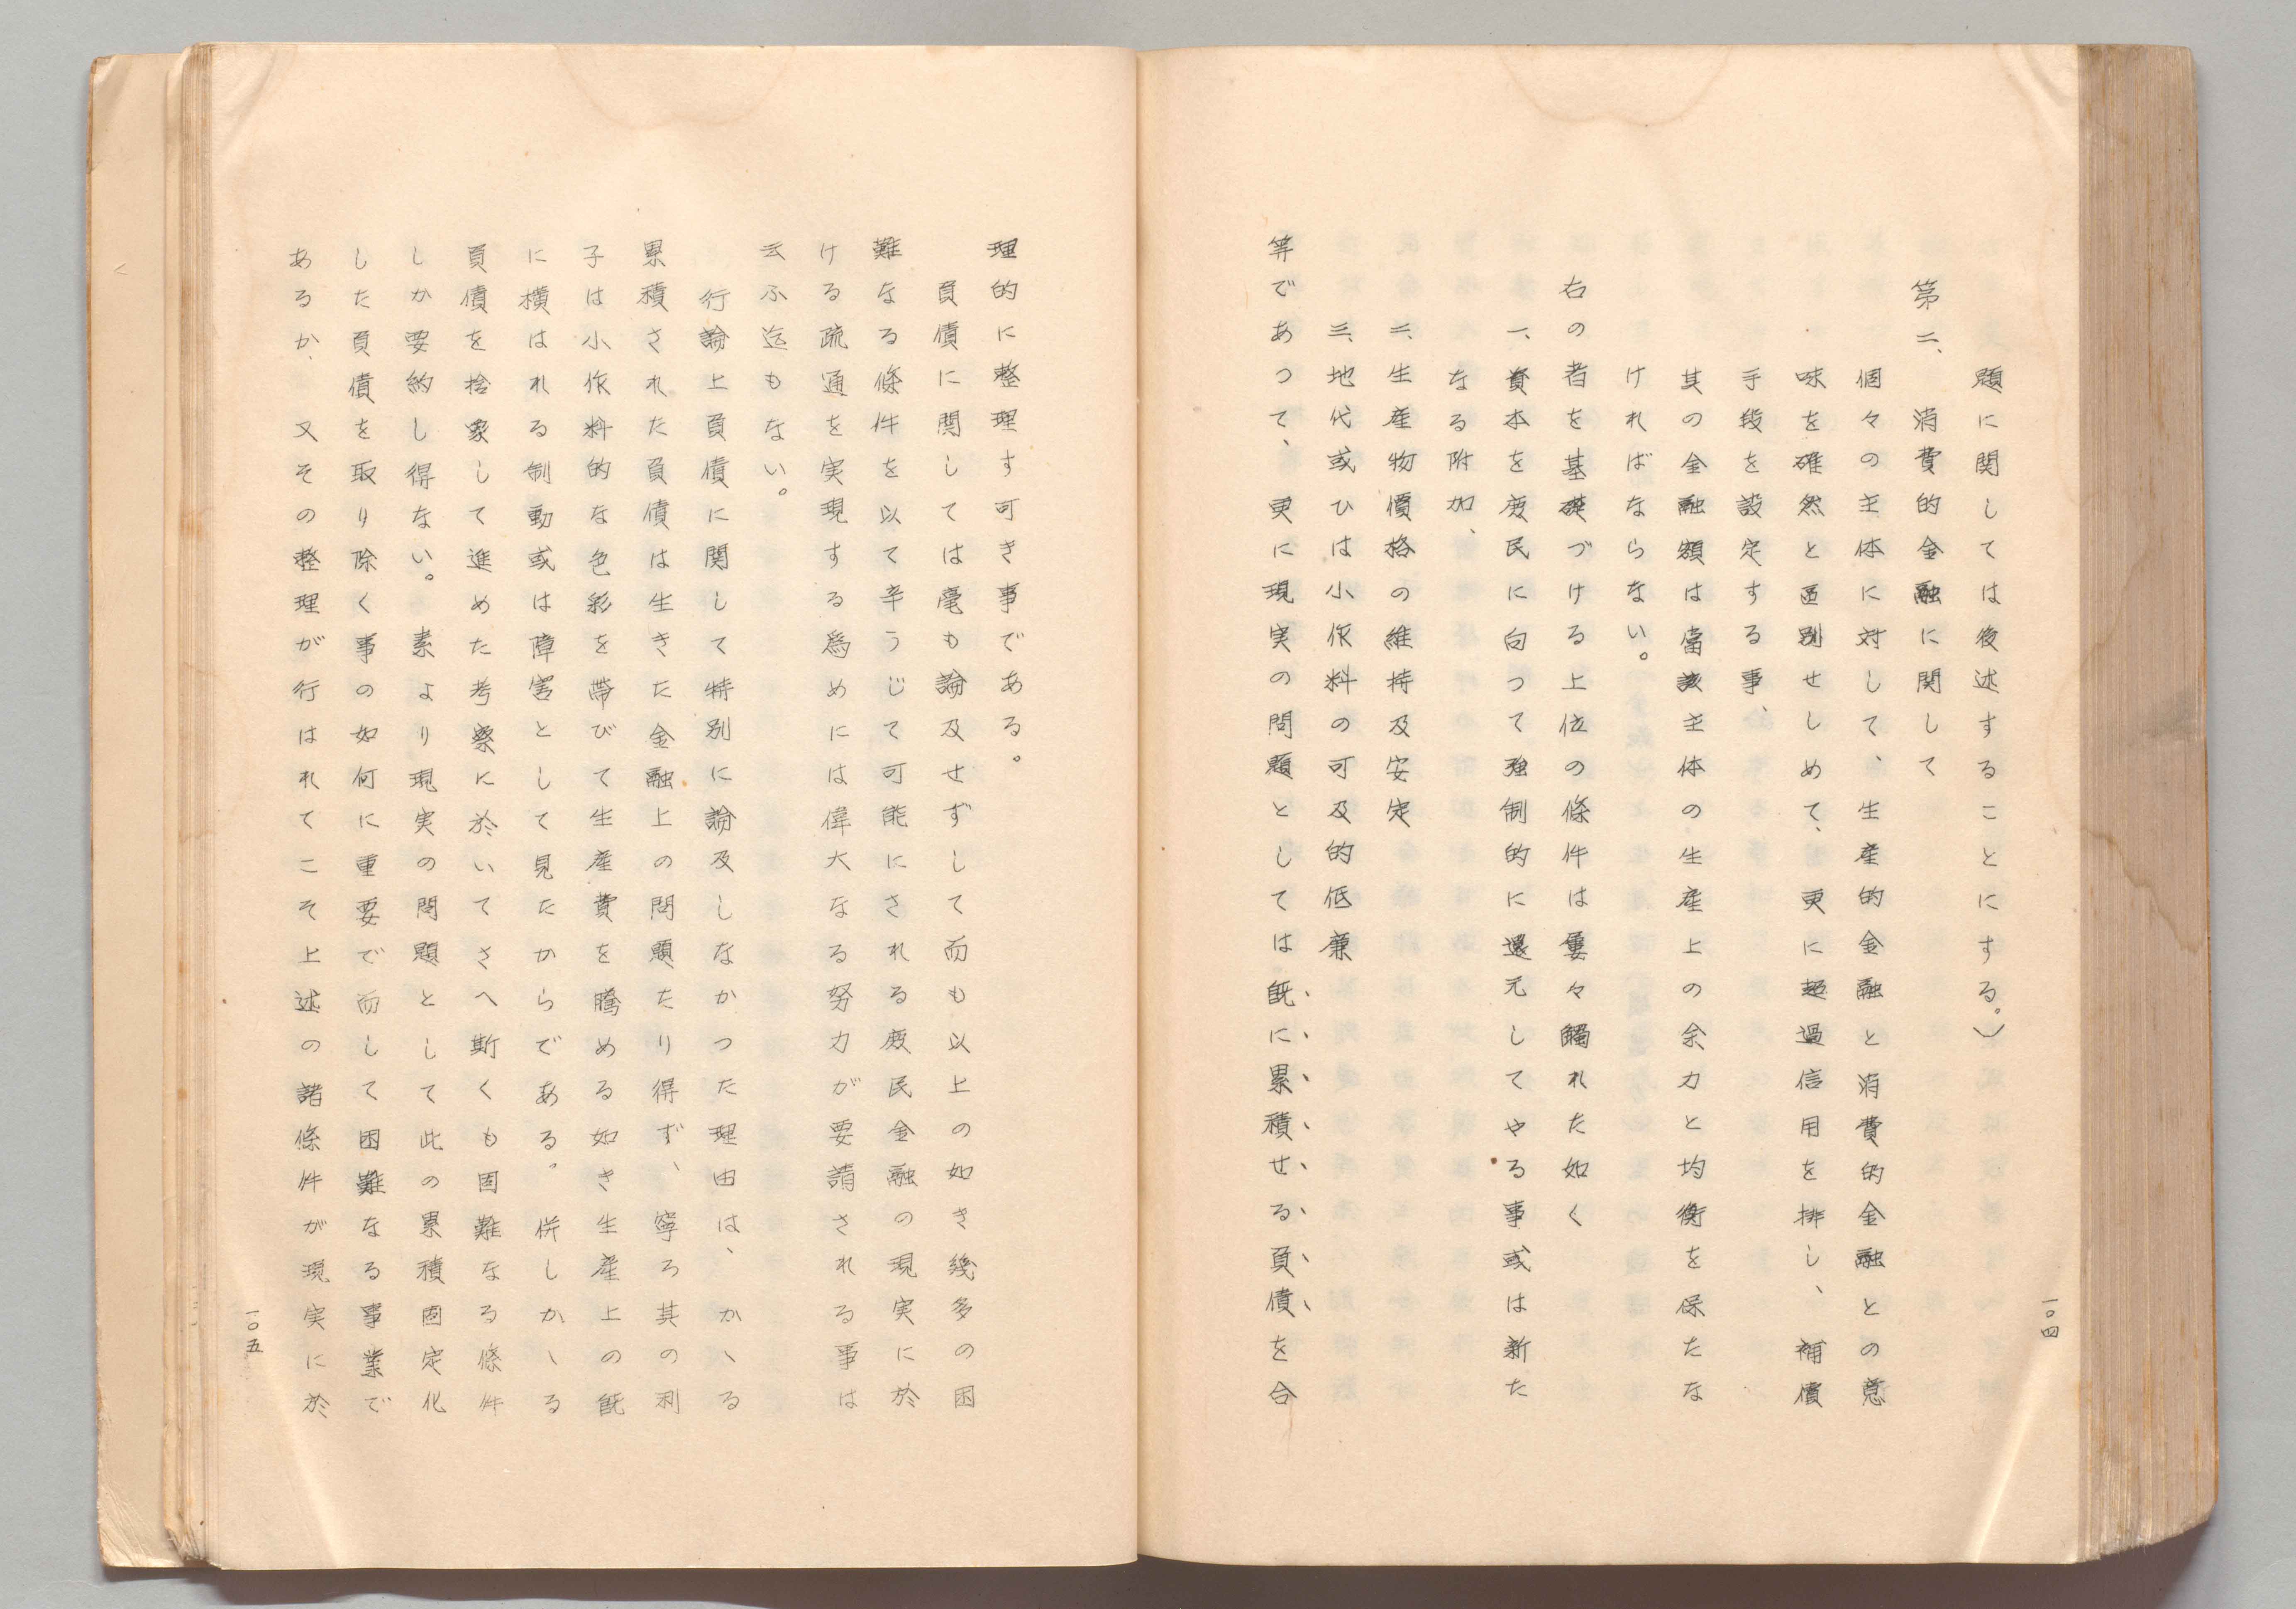 題に関しては後述することにする。)
第二、消費的金融に関して
個々の主体に対して、生産的金融と消費的金融との意
味を確然と区別せしめて、更に超過信用を排し、補償
手段を設定する事、
其の金融額は當該主体の生産上の余力と均衡を保たな
ければならない。
右の者を基礎づける上位の條件は屢々觸れた如く
一、資本を農民に向つて強制的に還元してやる事或は新た
なる附加、
二、生産物價格の維持及安定
三、地代或ひは小作料の可及的低廉
等であつて、更に現実の問題としては既に累積せる負債を合
一〇四
理的に整理す可き事である。
負債に関しては毫も論及せずして而も以上の如き幾多の困
難なる條件を以て辛うじて可能にされる農民金融の現実に於
ける疏通を実現する爲めには偉大なる努力が要請される事は
云ふ迄もない。
行論上負債に関して特別に論及しなかつた理由は、かゝる
累積された負債は生きた金融上の問題たり得ず、寧ろ其の利
子は小作料的な色彩を帶びて生産費を騰める如き生産上の既
に横はれる制動或は障害として見たからである。併しかゝる
負債を捨象して進めた考察に於いてさへ斯くも困難なる條件
しか要約し得ない。素より現実の問題として此の累積固定化
した負債を取り除く事の如何に重要で而して困難なる事業で
あるか、又その整理が行はれてこそ上述の諸條件が現実に於
一〇五